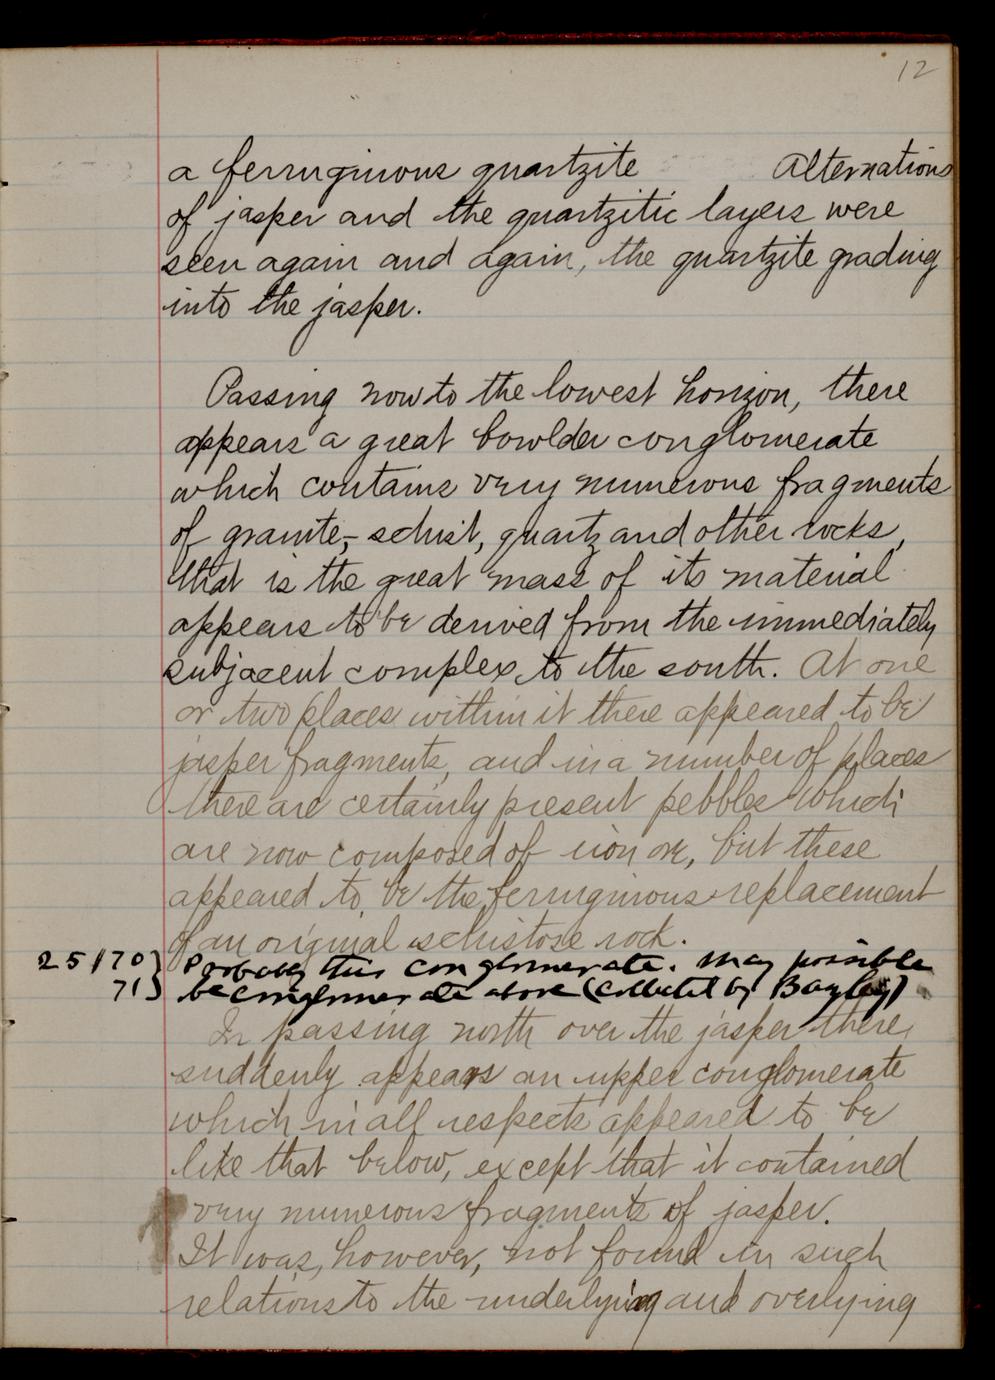 12
a ferruginous quartzite Alternations
of jasper and the quartzitic layers were
seen again and again, the quartzite grading
into the jasper.
Passing now to the lowest horizon, there
appears a great bowlder conglomerate
which contains very numerous fragments
of granite, schist, quartz and other rocks,
that is the great mass of its material
appears to be derived from the immediately
subjacent complex to the south. At one
or two places within it there appeared to be
jasper fragments, and in a number of places
there are certainly present pebbles which
are now composed of iron ore, but these
appeared to be the ferruginous replacement
of an original schistose rock.
25170} Probably this conglomerate. May possible
71} be conglomerate above (Collected by Bayley)
In passing north over the jasper there,
suddenly appears an upper conglomerate
which in all respects appeared to be
like that below, except that it contained
very numerous fragments of jasper.
It was, however, not found in such
relations to the underlying and overlying